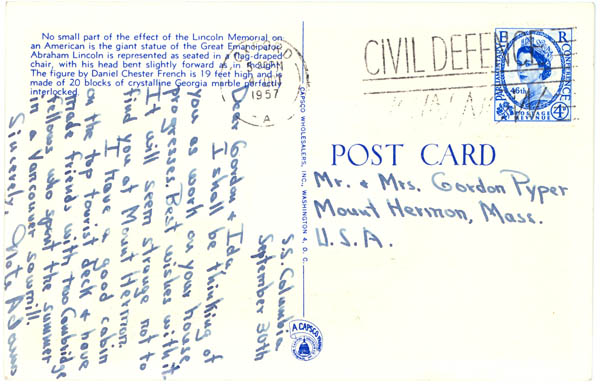 No small part of the effect of the Lincoln Memorial on
an American is the giant statue of the Great Emancipator.
Abraham Lincoln is represented as seated in a flag-draped
chair, with his head bent slightly forward as in thought.
The figure by Daniel Chester French is 19 feet high and is
made of 20 blocks of crystalline Georgia marble perfectly
interlocked.
1957
A
CIVIL DEFEN
E R
PARLIAMENTARY
CONFERENCE
46th
4D
POSTAGE
REVENUE
CAPSCO WHOLESALERS, INC., WASHINGTON 4, D. C.
POST CARD
Mr. & Mrs. Gordon Pyper
Mount Hermon, Mass.
U.S.A.
S.S. Columbia
September 30th
Dear Gordon & Ida,
I shall be thinking of
you as work on your house
progresses. Best wishes with it.
It will seem strange not to
find you at Mount Hermon.
I have a good cabin
on the top tourist deck & have
made friends with two Cambridge
fellows who spent the summer
in a Vancouver sawmill.
Sincerely,
Adams
A CAPSCO